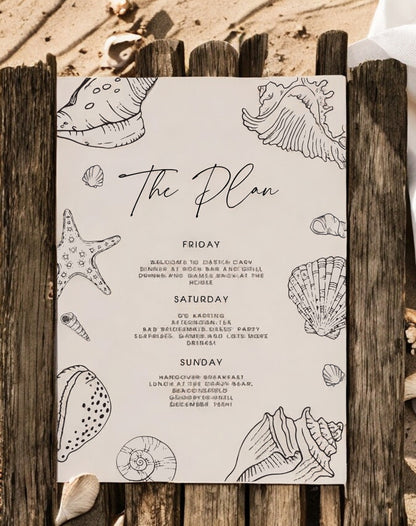 The Plan
FRIDAY
WELCOME TO
DINNER AT ROCK BAR AND GRILL
DRINKS AND GAMES BACK AT THE
HOUSE
SATURDAY
GO KARTING
AFTERNOON TEA
BAD BRIDESMAID DRESS PARTY
SURPRISES, GAMES AND LOTS MORE
DRINKS!
SUNDAY
HANGOVER BREAKFAST
LUNCH AT THE BEAR,
BEACONSFIELD